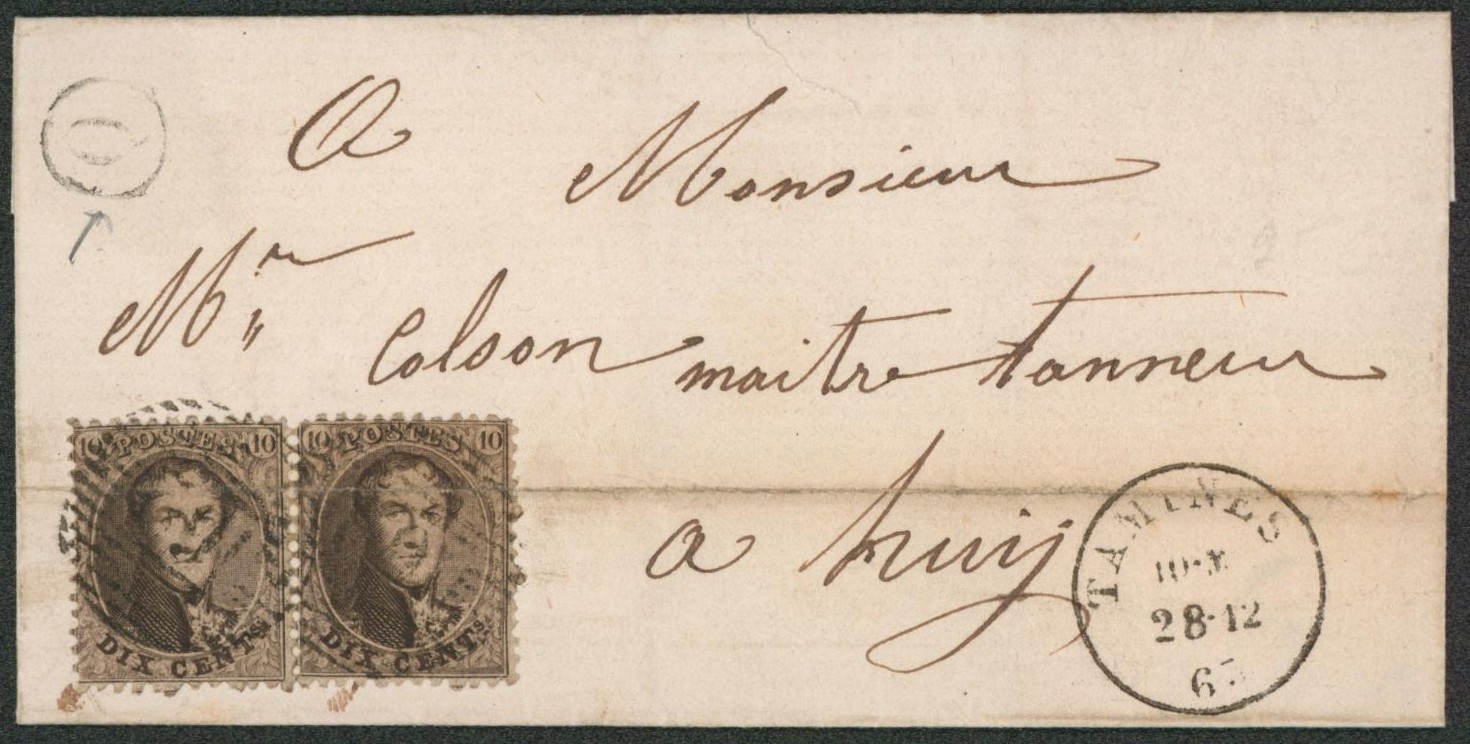 O
a Monsieur
Mr Colson maitre tanneur
10 POSTES 10
DIX CENTS
10 POSTES 10
DIX CENTS
a huy
TAMINES
28·12